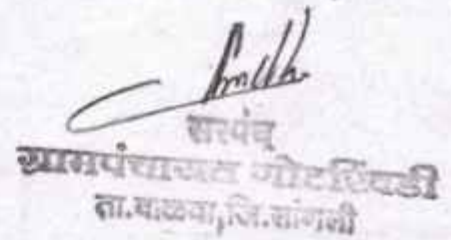 सरपंच
ग्रामपंचायत गोटखिंडी
ता.वाळवा,जि.सांगली